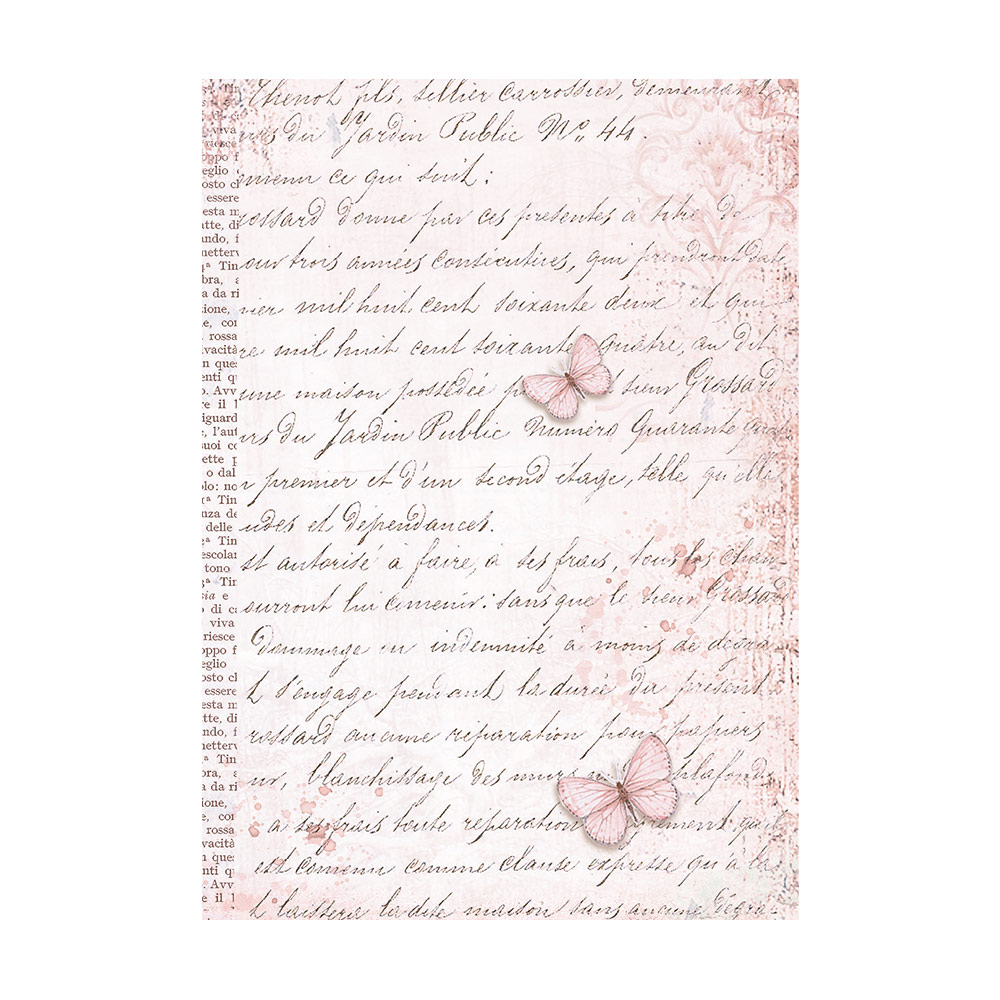 Thenot fils, sellier Carrossier, demeurant
urs du Jardin Public Nº 44.
ce qui suit:
ossard donne par ces presentes à titre de
our trois années consécutives, qui prendront date
vier mil huit cent soixante deux et qui
re mil huit cent soixante quatre, au dit
une maison possédée sieur Grossard
rs du Jardin Public Numéro Quarante
premier et d'un second étage, telle qu'elle
udes et dépendances.
st autorisé à faire, à ses frais, tous les chan-
ourront lui convenir: sans que le sieur Grossard
Dommage ou indemnité à moins de dégra-
t s'engage pendant la durée du présent
rossard aucune réparation pour papiers
ur, blanchissage des murs plafonds
a ses frais toute réparation
est convenu comme clause expresse qu'à la
t laissera la dite maison sans aucune dégra-
viva
oppo f
eglio
osto cl
essere
esta m
tte, di
ando, f
metterv
ª Tin
bra, a
a da ri
ione,
e, cor
rossa
vacità
n que
enti q
. Avv
e il l
iguard
, l'aut
uoi co
ette p
o dal
lo: no
ª Tin
nza de
delle
ª Tin
escolar
tono
ª Tin
sia e
di ca
viva
riesce
oppo f
eglio
osto cl
essere
esta m
tte, di
ndo, f
netterv
ª Tin
bra, a
a da ri
ione,
, cor
rossa
vacità
n que
nti q
. Avv
e il l